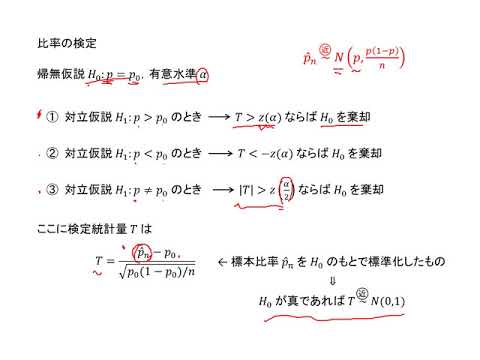 比率の検定
p̂ₙ ~(近) N(p, p(1−p)/n)
帰無仮説 H₀: p = p₀, 有意水準 α
① 対立仮説 H₁: p > p₀ のとき → T > z(α) ならば H₀ を棄却
② 対立仮説 H₁: p < p₀ のとき → T < −z(α) ならば H₀ を棄却
③ 対立仮説 H₁: p ≠ p₀ のとき → |T| > z(α/2) ならば H₀ を棄却
ここに検定統計量 T は
T = (p̂ₙ − p₀) / √(p₀(1 − p₀)/n) ← 標本比率 p̂ₙ を H₀ のもとで標準化したもの
⇓
H₀ が真であれば T ~(近) N(0,1)